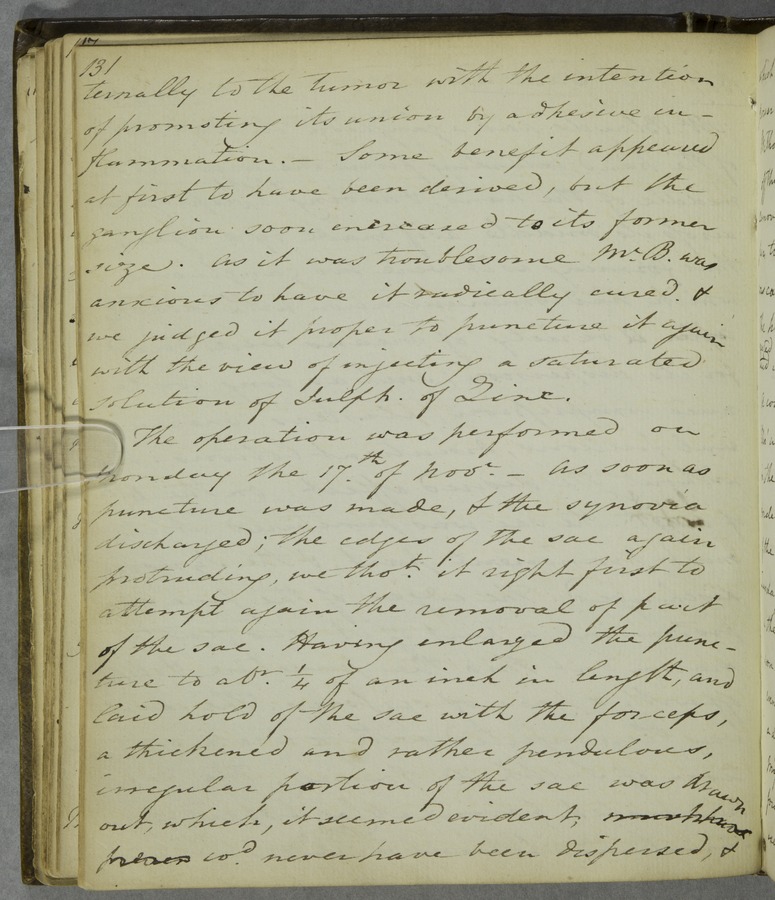 131
ternally to the tumor with the intention
of promoting its union by adhesive in-
flammation. — Some benefit appeared
at first to have been derived, but the
ganglion soon increased to its former
size. As it was troublesome Mr. B. was
anxious to have it radically cured. &
we judged it proper to puncture it again
with the view of injecting a saturated
solution of Sulph. of Zinc.
The operation was performed on
Monday the 17.th of Novr. — As soon as
puncture was made, & the synovia
discharged; the edges of the sac again
protruding, we thot. it right first to
attempt again the removal of part
of the sac. Having enlarged the punc-
ture to abt. 1/4 of an inch in length, and
laid hold of the sac with the forceps,
a thickened and rather pendulous,
irregular portion of the sac was drawn
out, which, it seemed evident,
wod. never have been dispersed, &